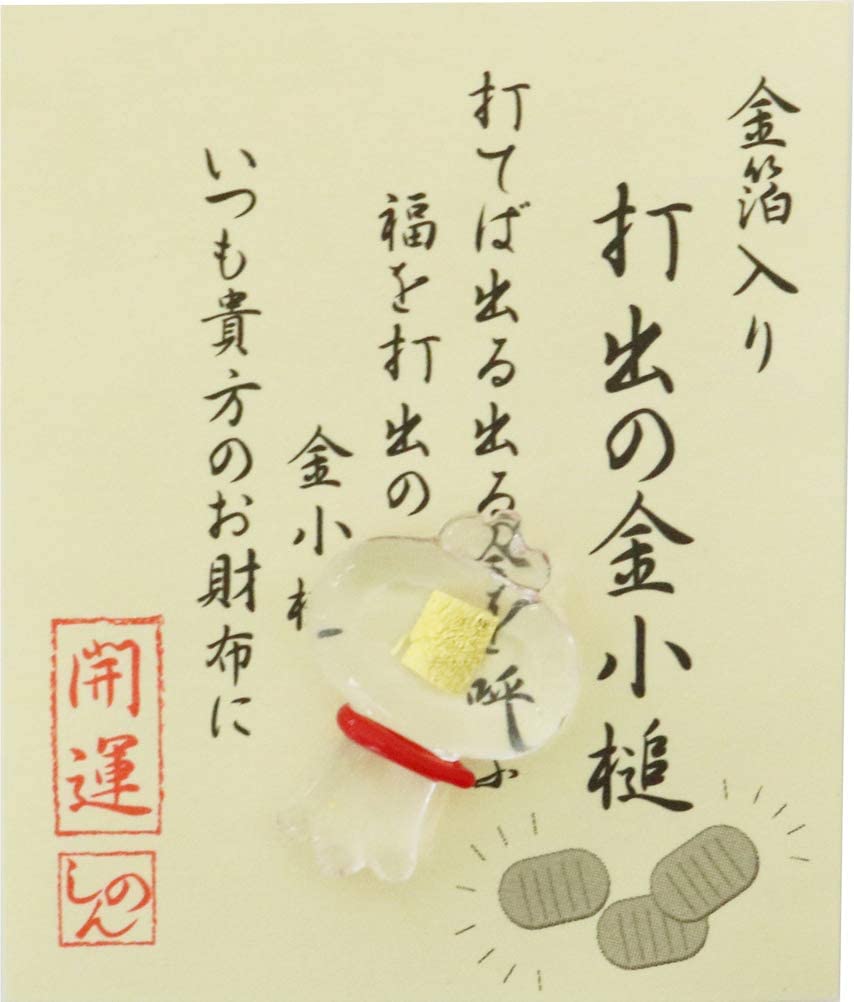 金箔入り
打出の金小槌
打てば出る出る金を呼ぶ
福を打出の
金小
いつも貴方のお財布に
開運
しのん